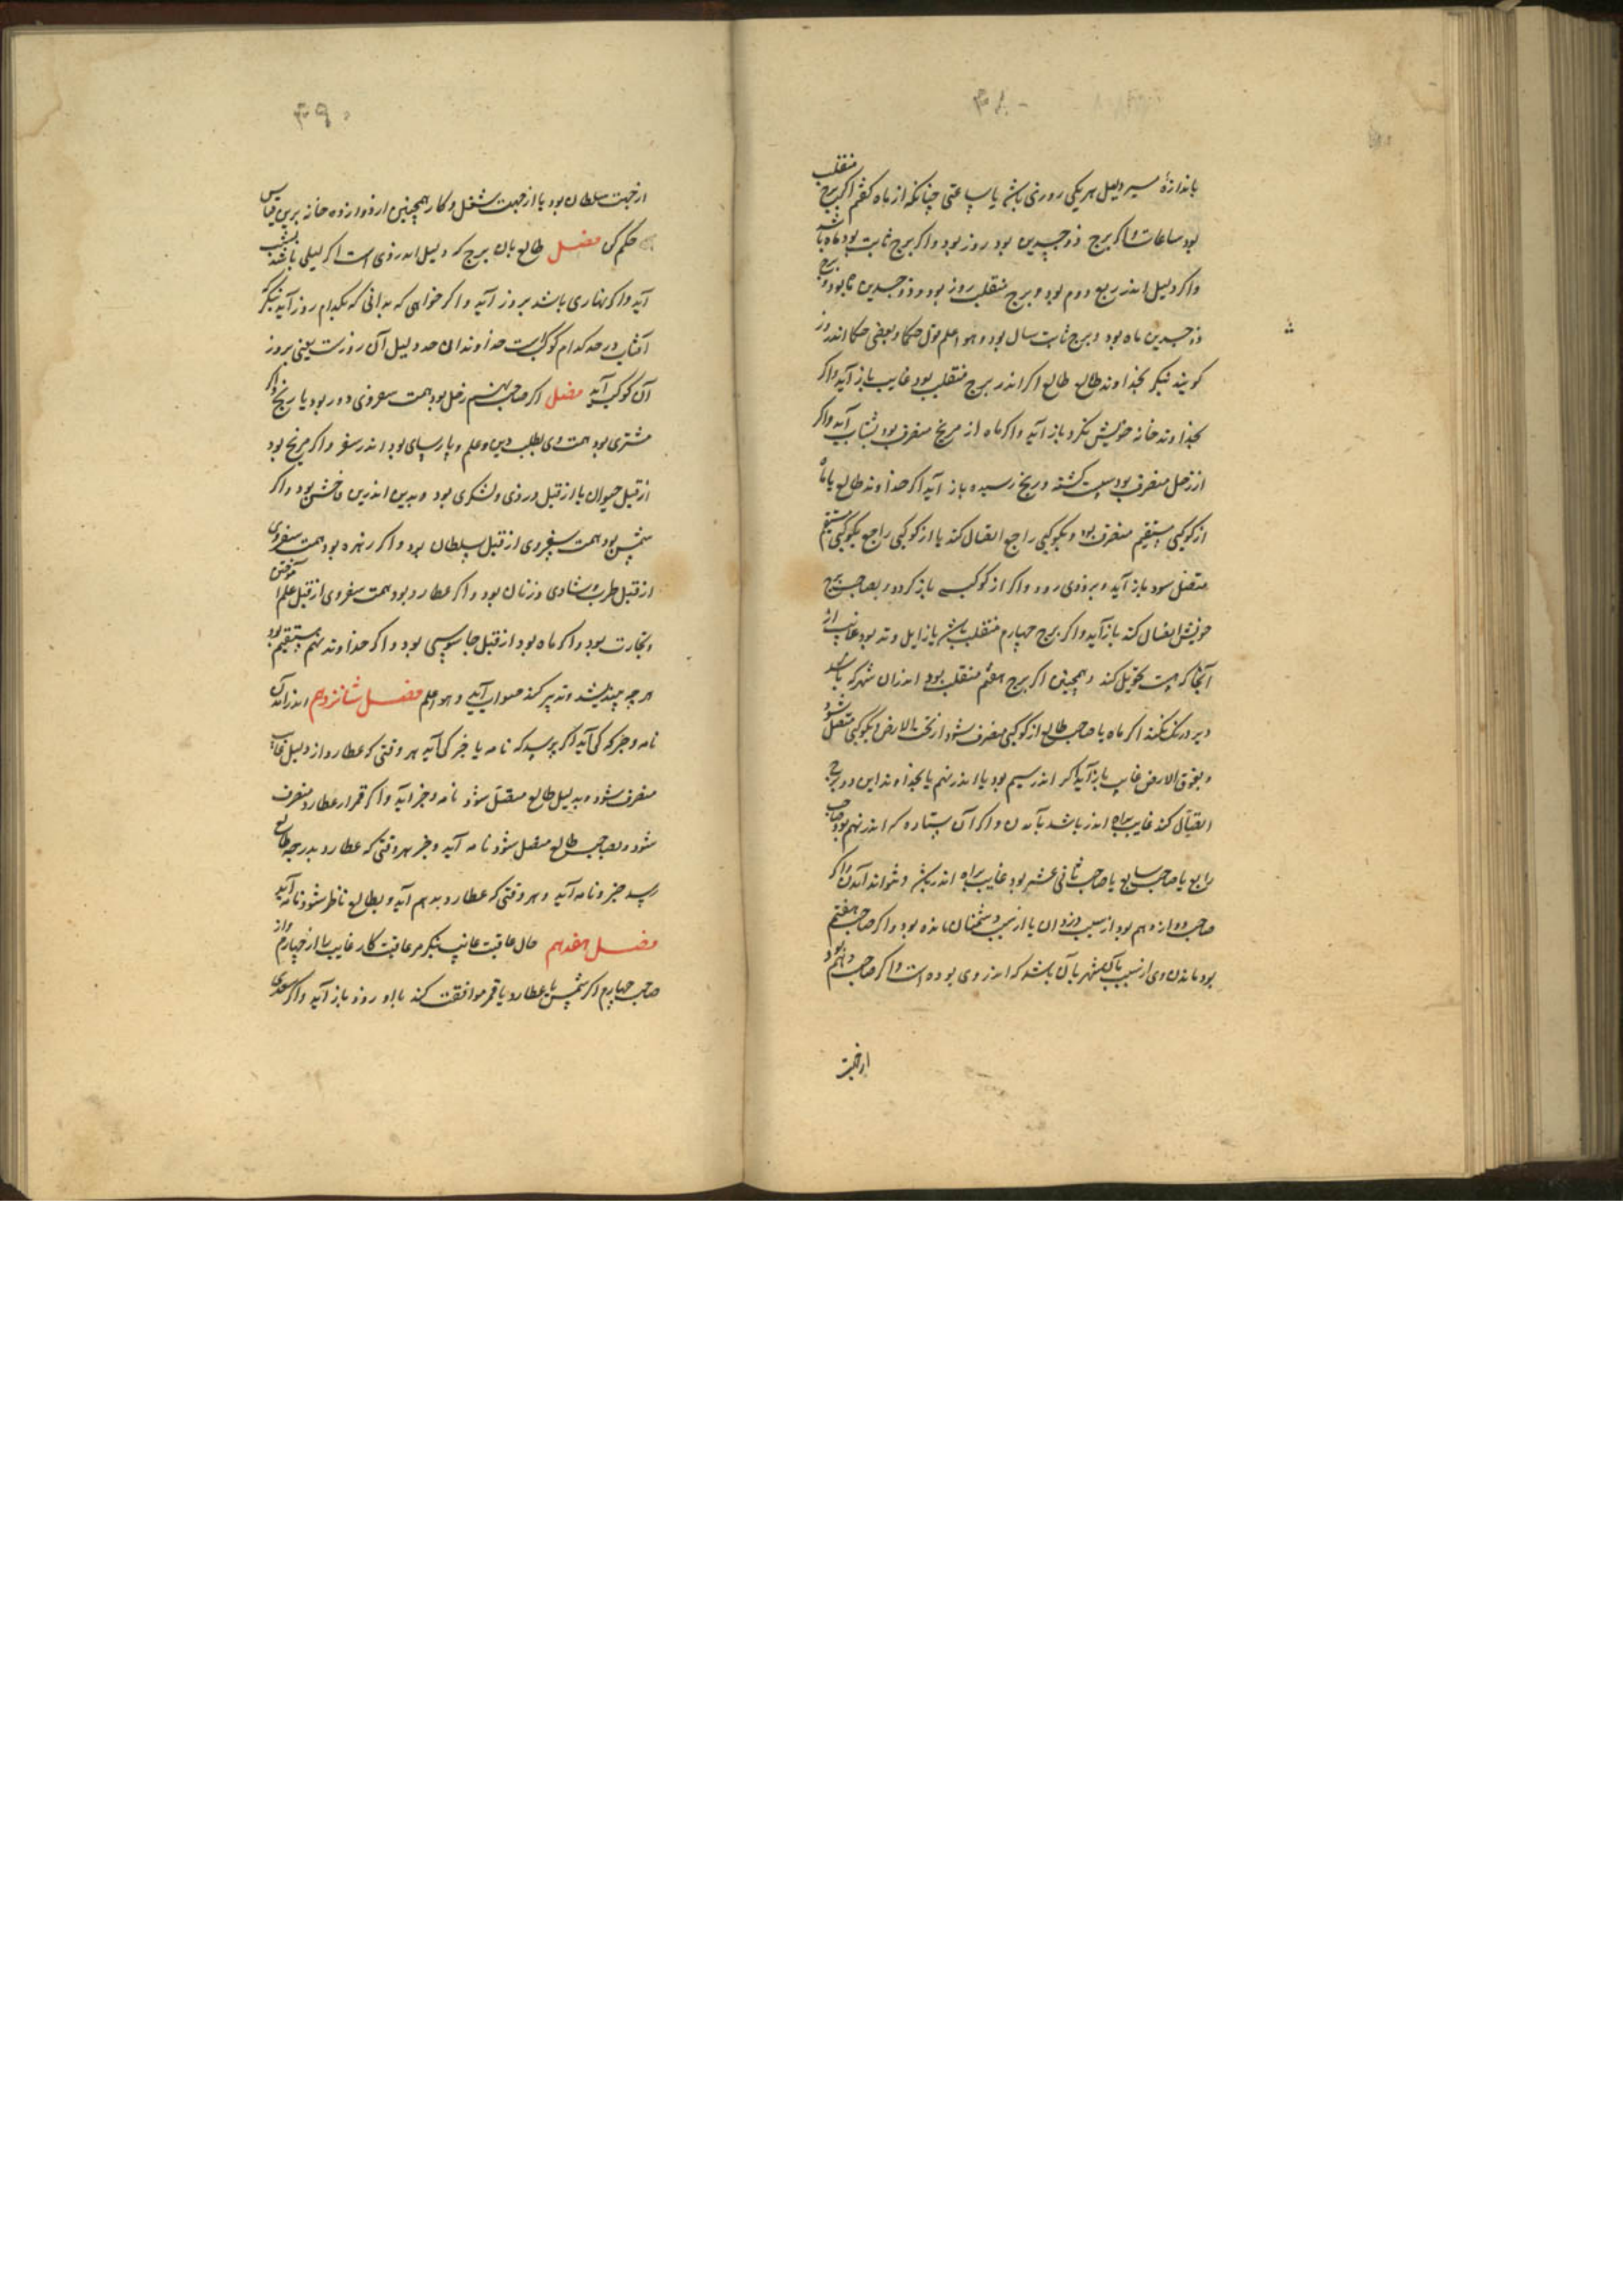 باندازهٔ مسیر دلیل هر یکی روزی باشد یا ساعتی چنانکه از ماه گفتم اگر برج منقلب
بود ساعات و اگر برج ذوجسدین بود روز بود و اگر برج ثابت بود ماه باشد
و اگر دلیل اندر ربع دوم بود و برج منقلب روز بود و ذوجسدین بود و برج
ذوجسدین ماه بود و برج ثابت سال بود و هو اعلم قول حکما و بعضی حکما اندر
کویند بنکر بخداوند طالع اکر اندر برج منقلب بود غایب باز آید و اکر
بخداوند خانه خویش نکرد باز آید و اکر ماه از مریخ منصرف بود بشتاب آید و اکر
از زحل منصرف بود سست کشته و رنج رسیده باز آید اکر خداوند طالع یا ماه
از کوکبی مستقیم منصرف بود و بکوکبی راجع اتصال کند یا از کوکبی راجع بکوکبی مستقیم
متصل سود باز آید و بزودی رود و اکر از کوکب باز کردد و بصاحب برج
خویش اتصال کند باز آید و اکر برج چهارم منقلب باشد یا زایل وتد بود غایب از
آنجا که هست تحویل کند و همچنین اکر برج هفتم منقلب بود اندران شهر که باشد
دیر درنک نکند اکر ماه یا صاحب طالع از کوکبی منصرف شود از تحت الارض و بکوکبی متصل شود
و بفوق الارض غایب باز آید اکر اندر سیم بود یا اندر نهم یا بخداوند این دو برج
اتصال کند غایب براه اندر باشد بآمدن و اکر آن ستاره که اندر نهم بود صاحب
رابع یا صاحب سابع یا صاحب ثانی عشر بود غایب براه اندر باشد و نتواند آمدن و اکر
صاحب دوازدهم بود از سبب دزدان یا از سبب دشمنان مانده بود و اکر صاحب هفتم
بود ماندن وی از سبب شهر باشد که اندر وی بوده است و اکر صاحب دهم بود
از جهت
از جهت سلطان بود یا از جهت شغل و کار همچنین از دوازده خانه برین قیاس
حکم کن فصل طالع بان برج که دلیل اندر وی است اکر لیلی باشد بشب
آید و اکر نهاری باشد بروز آید و اکر خواهی که بدانی که بکدام روز آید بنکر
آفتاب در حد کدام کوکب است خداوندان حد دلیل آن روزست یعنی بروز
آن کوکب آید فصل اکر صاحب نهم زحل بود همت سفر وی دور بود با رنج و اکر
مشتری بود همت وی بطلب دین و علم و پارسایی بود اندر سفر و اکر مریخ بود
از قبل حیوان یا از قبل دزدی و لشکری بود و بدین اندرین ناخشنود و اکر
شمس بود همت سفر وی از قبل سلطان بود و اکر زهره بود همت سفر وی
از قبل طرب و شادی و زنان بود و اکر عطارد بود همت سفر وی از قبل علم آموختن
و تجارت بود و اکر ماه بود از قبل جاسوسی بود و اکر خداوند نهم مستقیم بود
هر چه بیندیشد و تدبیر کند صواب آید و هو اعلم فصل شانزدهم اندر آمدن
نامه و خبر که کی آید اکر پرسد که نامه یا خبر کی آید هر وقتی که عطارد از دلیل غایب
منصرف شود و بدلیل طالع متصل شود نامه و خبر آید و اکر قمر از عطارد منصرف
شود و بصاحب طالع متصل شود نامه آید و خبر هر وقتی که عطارد بدرجه طالع
رسد خبر و نامه آید و هر وقتی که عطارد بدهم آید و بطالع ناظر شود نامه آید
فصل هفدهم حال عاقبت غایب بنکر مر عاقبت کار غایب را از چهارم و از
صاحب چهارم اکر شمس یا عطارد یا قمر موافقت کند با او زود باز آید و اکر سعدی